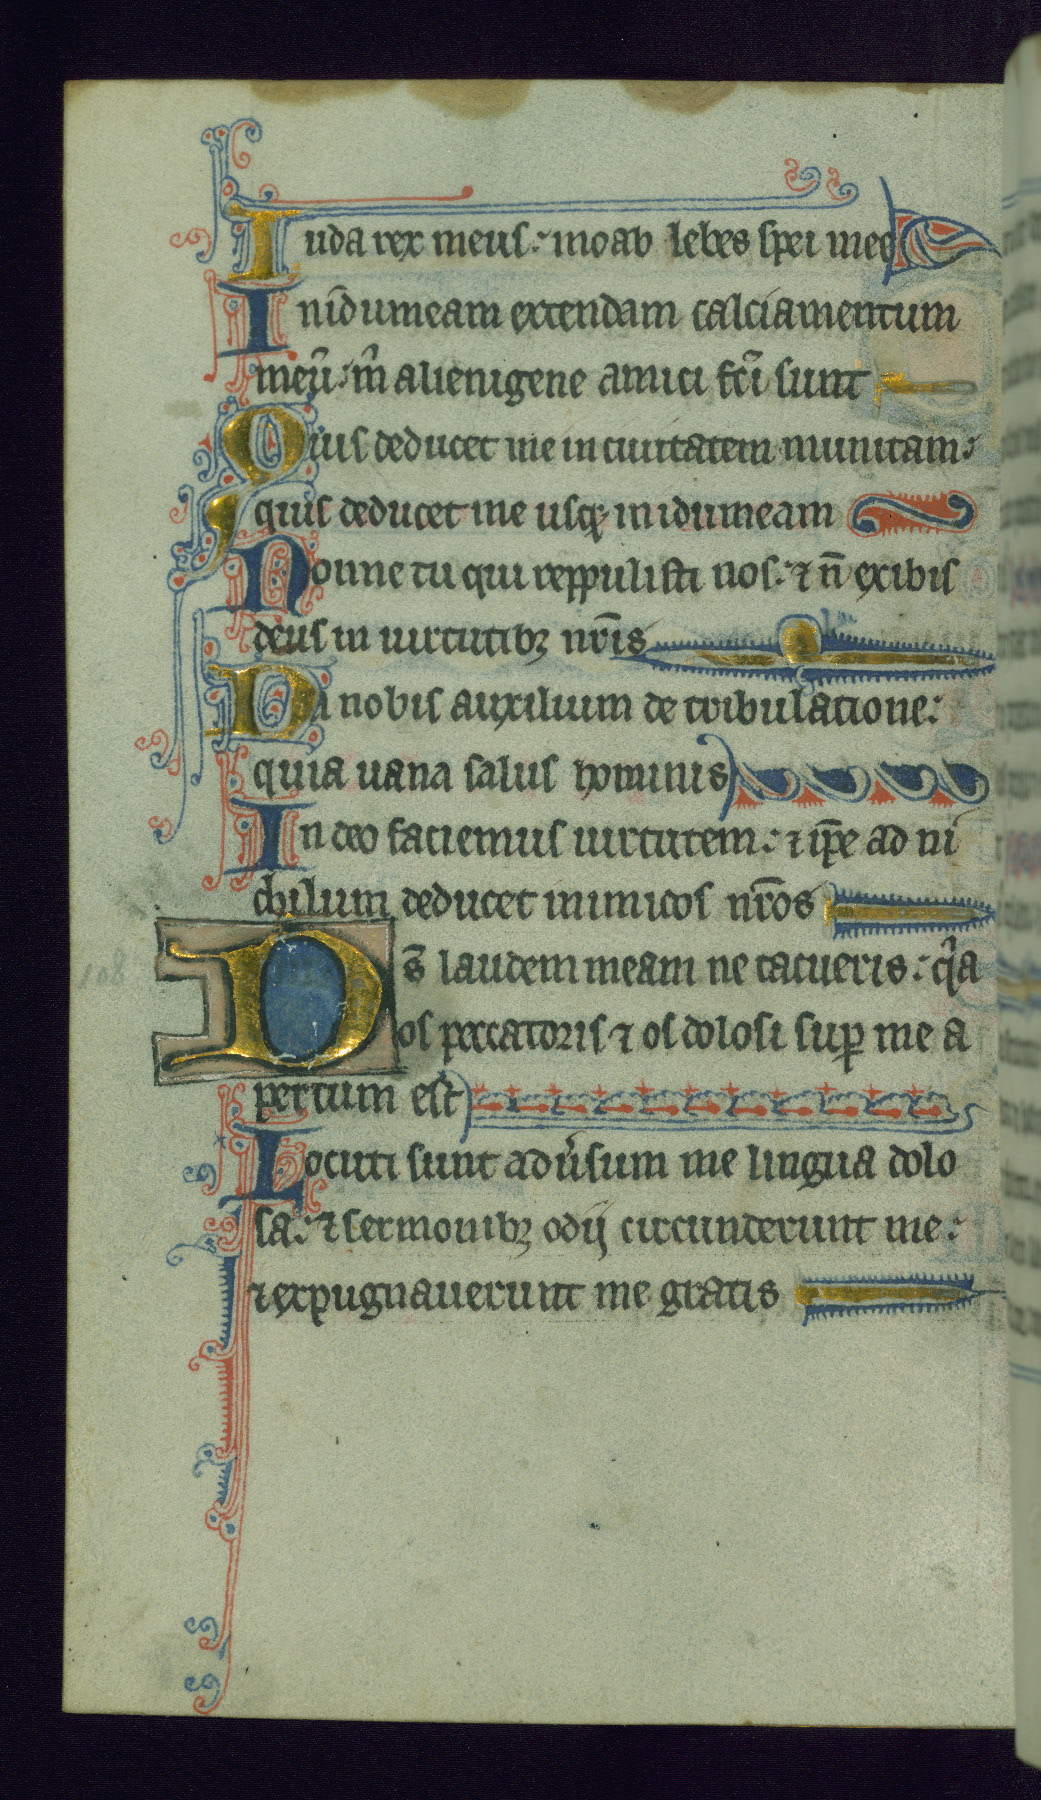 Iuda rex meus: moab lebes spei mee
In idumeam extendam calciamentum
meū: m̄ alienigene amici fc̄i sunt
Quis deducet me in ciuitatem munitam:
quis deducet me usqꝫ in idumeam
Nonne tu qui reppulisti nos: ⁊ n̄ exibis
deus in uirtutibꝫ nr̄is
Da nobis auxilium de tribulatione:
quia uana salus hominis
In deo faciemus uirtutem: ⁊ ip̄e ad ni
chilum deducet inimicos nr̄os
Ds̄ laudem meam ne tacueris: q̄a
os peccatoris ⁊ os dolosi suꝑ me a
pertum est
Locuti sunt adu̓sum me lingua dolo
sa: ⁊ sermonibꝫ odij circunderunt me:
⁊ expugnauerunt me gratis
108